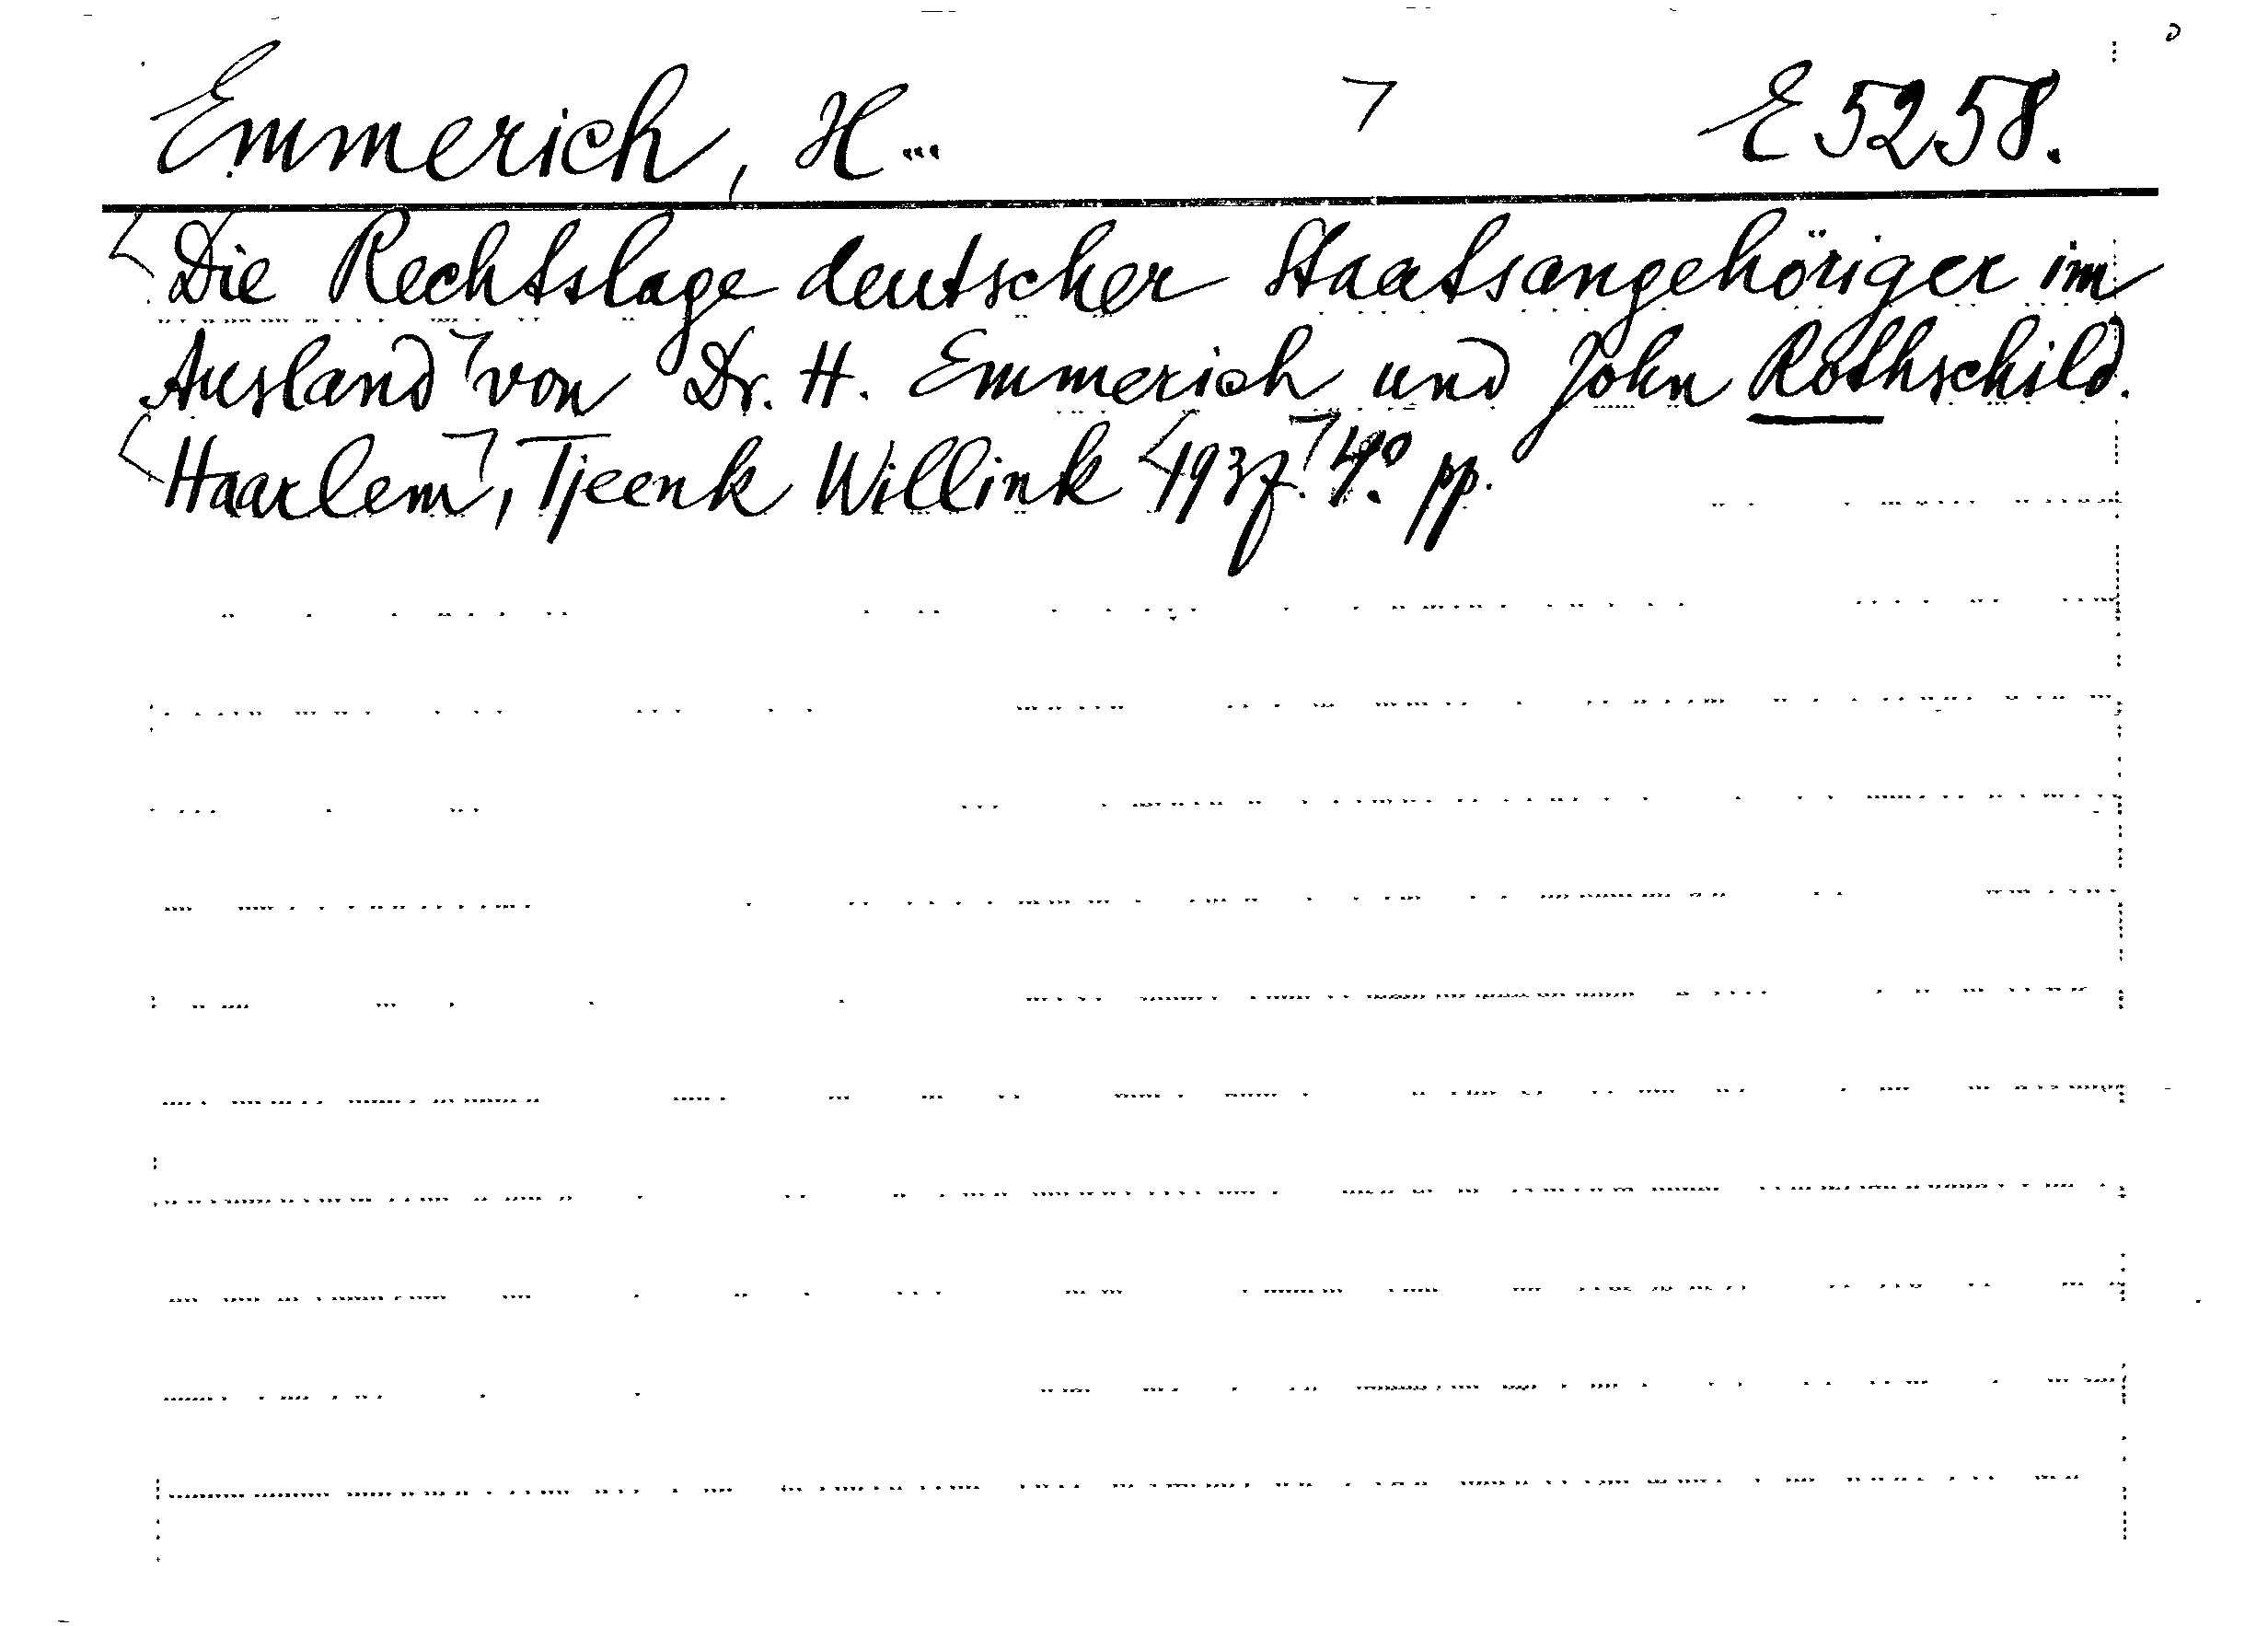 Emmerich, H... E 5258.
Die Rechtslage deutscher Staatsangehöriger im
Ausland von Dr. H. Emmerich und John Rothschild.
Haarlem, Tjeenk Willink 1937. 4o. pp.